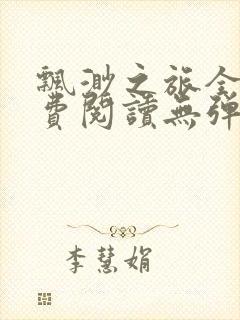 飄渺之旅全
費閱讀無彈
李慧娟